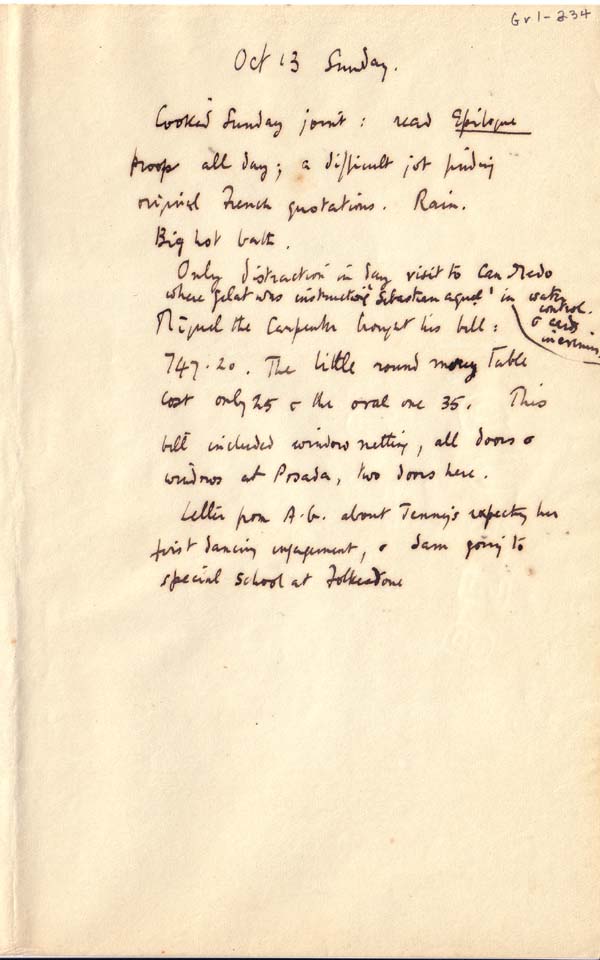 Gr1-234
Oct 13 Sunday.
Cooked Sunday joint: read Epilogue
proof all day; a difficult job finding
original French quotations. Rain.
Big hot bath.
Only distraction in day visit to Can Medo
where Gelat was instructing Sebastian in water control.
& cards in evening
Miguel the Carpenter brought his bill:
747.20. The little round money Table
cost only 25 & the oval one 35. This
bill included window netting, all doors &
windows at Posada, two doors here.
Letter from A.G. about Jenny's expecting her
first dancing engagement, & Sam going to
special school at Folkestone